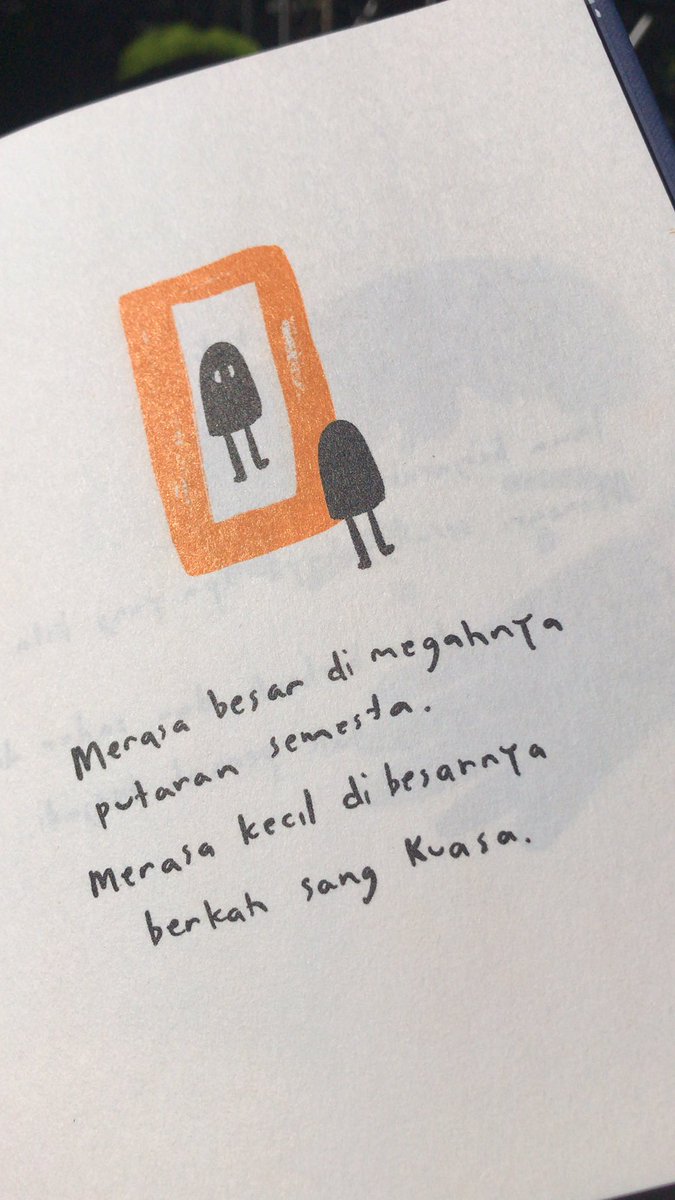 Merasa besar di megahnya
putaran semesta.
Merasa kecil di besarnya
berkah sang Kuasa.